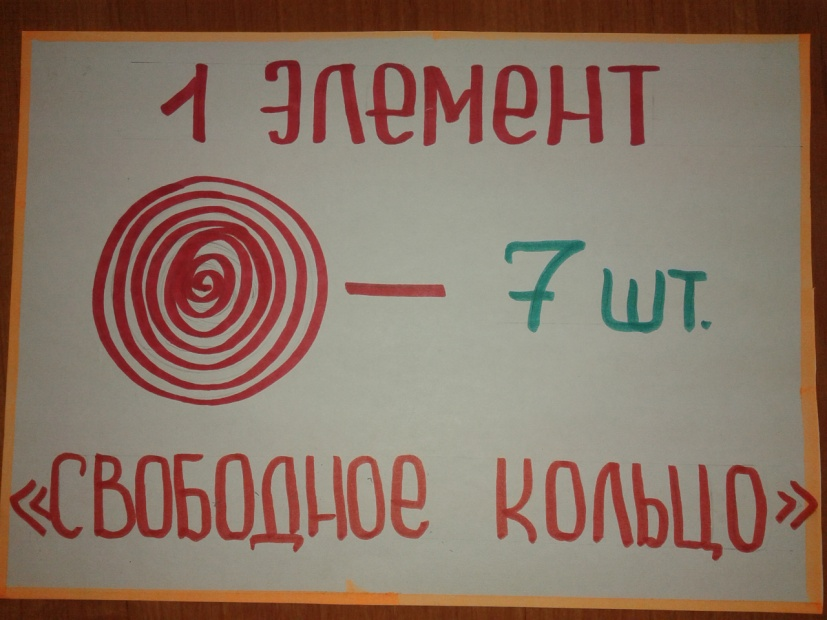 1 ЭЛЕМЕНТ
— 7 шт.
«СВОБОДНОЕ КОЛЬЦО»